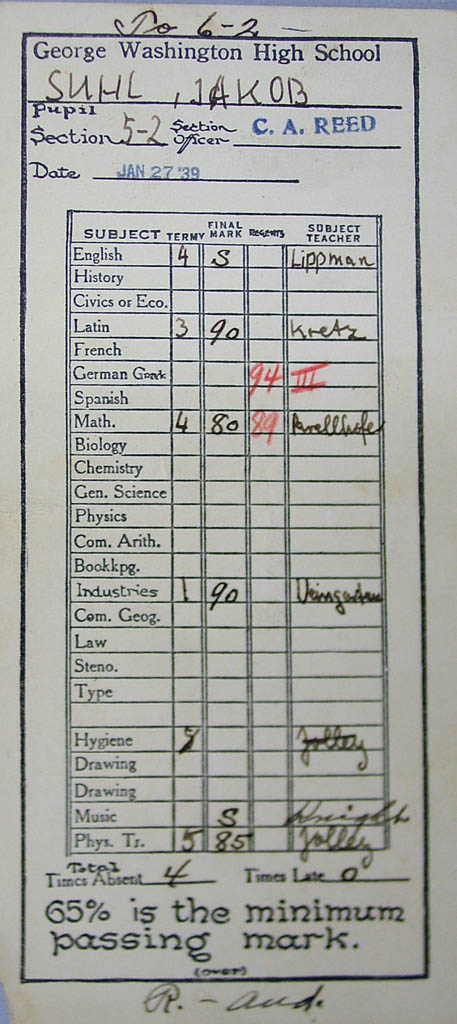 To 6-2 —
George Washington High School
SUHL, JAKOB
Pupil
Section 5-2 Section Officer C. A. REED
Date JAN 27 '39
SUBJECT TERM FINAL MARK REGENTS SUBJECT TEACHER
English 4 S Lippman
History
Civics or Eco.
Latin 3 90 Kretz
French
German Greek 94 III
Spanish
Math. 4 80 89
Biology
Chemistry
Gen. Science
Physics
Com. Arith.
Bookkpg.
Industries 1 90 Weingarten
Com. Geog.
Law
Steno.
Type
Hygiene Jolley
Drawing
Drawing
Music S Knight
Phys. Tr. 5 85 Jolley
Total
Times Absent 4 Times Late 0
65% is the minimum
passing mark.
(over)
R. - aud.